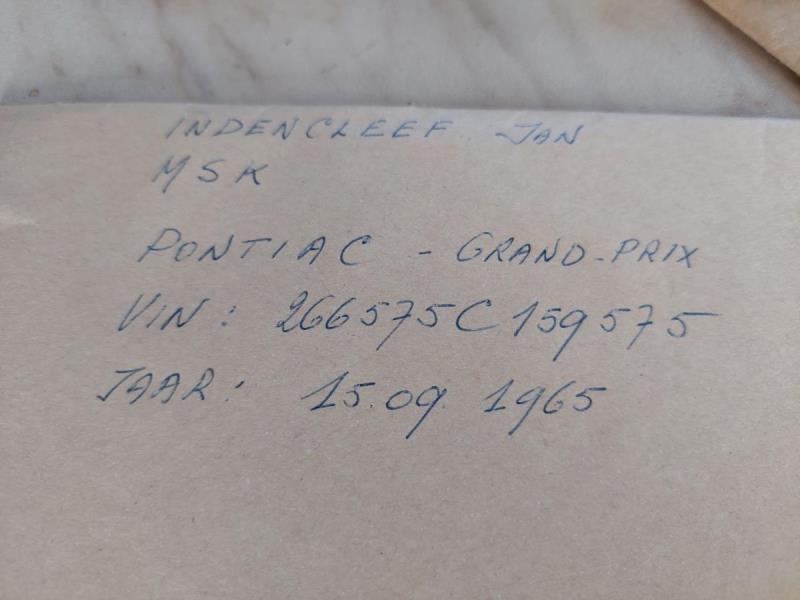 INDENCLEEF JAN
MSK
PONTIAC - GRAND-PRIX
VIN: 266575C159575
JAAR: 15.09 1965